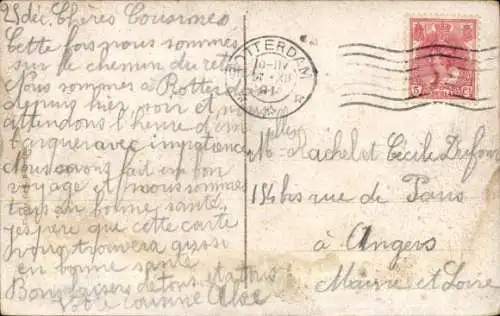 25 déc. Chères Cousines
Cette fois nous sommes
sur le chemin du retour
Nous sommes à Rotter
depuis hier soir et n
attendons l'heure d'em
barquer avec impatience
Nous avons fait un bon
voyage et nous sommes
tous en bonne santé
j'espère que cette carte
vous trouvera aussi
en bonne santé
Bons baisers de tous et à tous
Votre cousine
ROTTERDAM
5 ct
Melles Rachel et Cécile
154 bis rue de Paris
à Angers
Maine et Loire